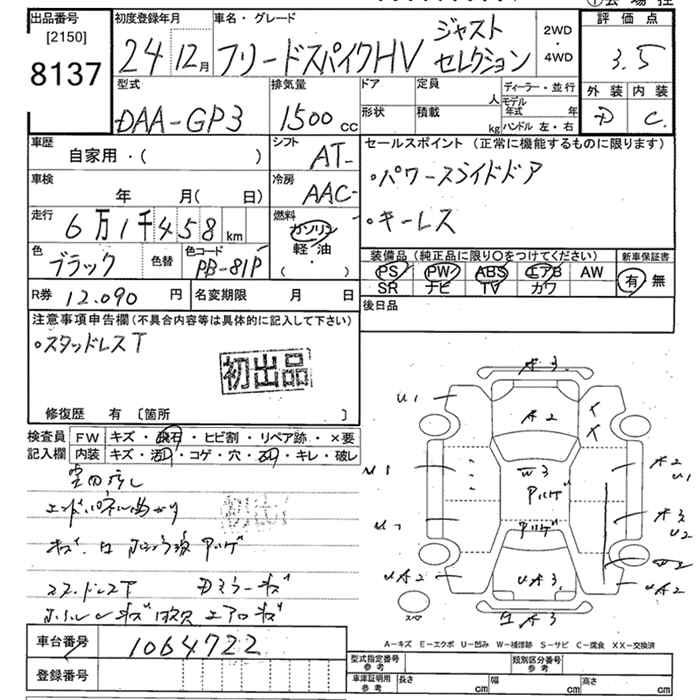 出品番号 初度登録年月 車名・グレード 評価点
[2150]
8137
24 12月 フリードスパイクHV ジャスト
セレクション
2WD
・
4WD
3.5
型式 排気量 ドア 定員 人 ディーラー・並行 外装 内装
DAA-GP3 1500cc 形状 積載 kg モデル年式 年
ハンドル 左・右
D C
車歴 自家用・( ) シフト AT-
セールスポイント (正常に機能するものに限ります)
・パワースライドドア
・キーレス
車検 年 月( 日) 冷房 AAC-
走行 6万1千458km 燃料 ガソリン
軽・油
( ・ )
色 ブラック 色替 色コード PB-81P
装備品 (純正品に限り○をつけてください) 新車保証書
PS PW ABS エアB AW 有 無
SR ナビ TV カワ
R券 12.090円 名変期限 月 日 後日品
注意事項申告欄(不具合内容等は具体的に記入して下さい)
・スタッドレスT
初出品
修復歴 有 〔箇所 〕
検査員 FW キズ・飛石・ヒビ割・リペア跡・×要
記入欄 内装 キズ・汚れ・コゲ・穴・スレ・キレ・破レ
エンドパネル曲がり
スタッドレスT Dミラーキズ
A3
U1 A2
W3
U1 A2 U1
A3 U2
W2
UA2 UA3 UA2
A3
スペア
A-キズ E-エクボ U-凹み W-補修跡 S-サビ C-腐食 XX-交換済
車台番号 1064722
登録番号
型式指定番号 参考 類別区分番号 参考
車庫証明用 参考 長さ cm 幅 cm 高さ cm